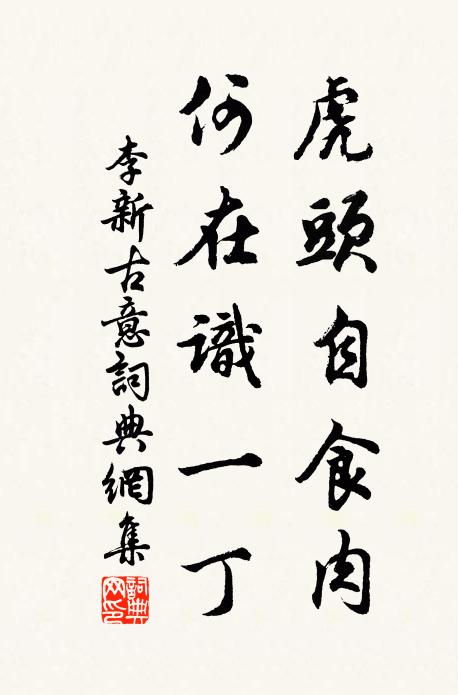 虎頭自食肉
何在識一丁
李新古意詞典網集
詞典網印